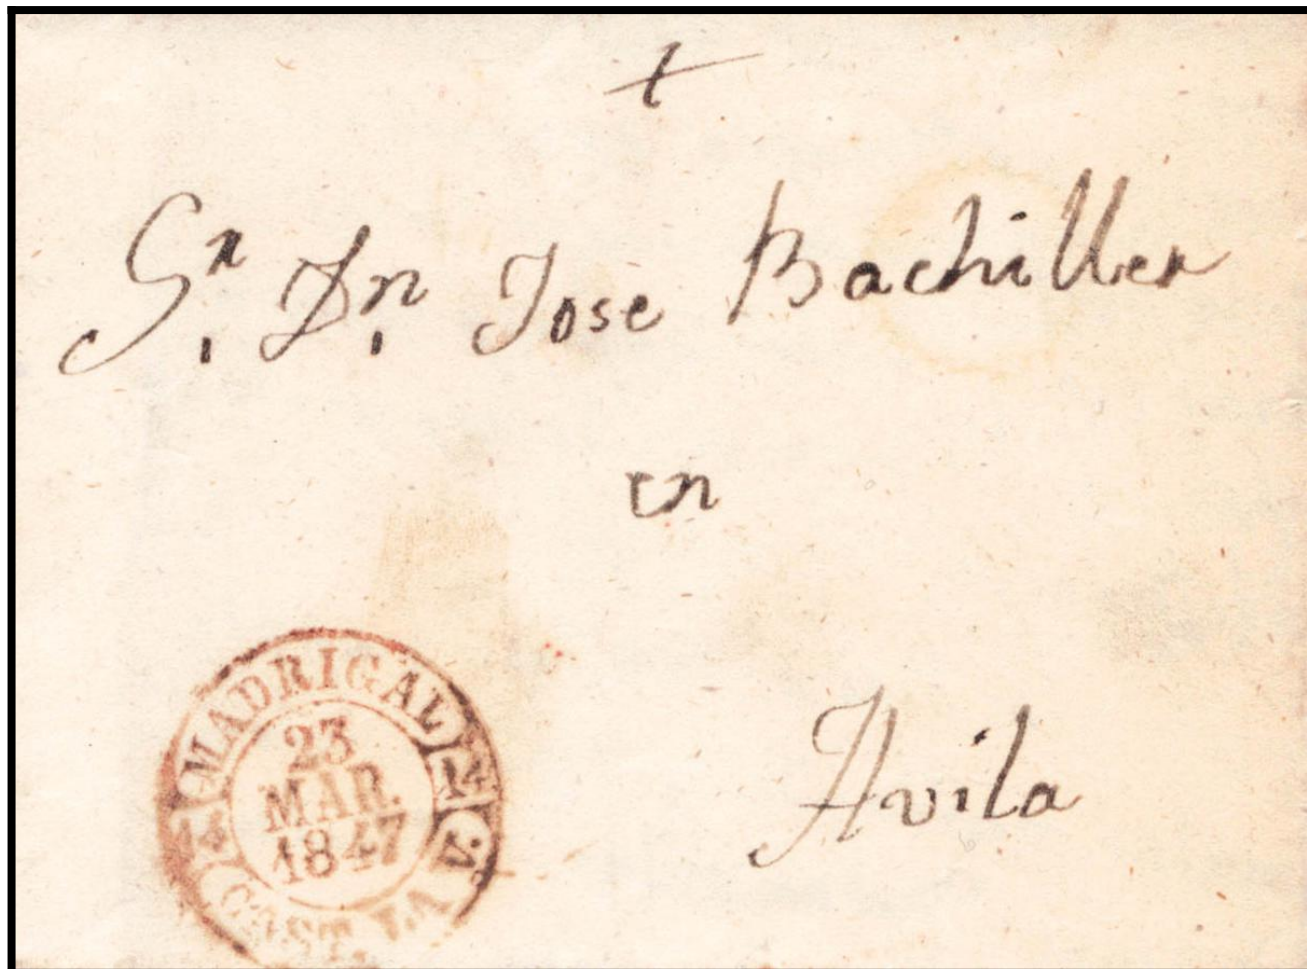 +
Sr. Dn. Jose Bachiller
en
Avila
MADRIGAL
23
MAR.
1847
CAST. LA V.